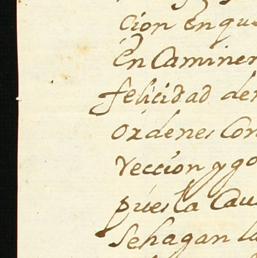 cion en qu
En Caminen
felicidad de
ordenes Con
reccion y go
puesta Cau
Sehagan la